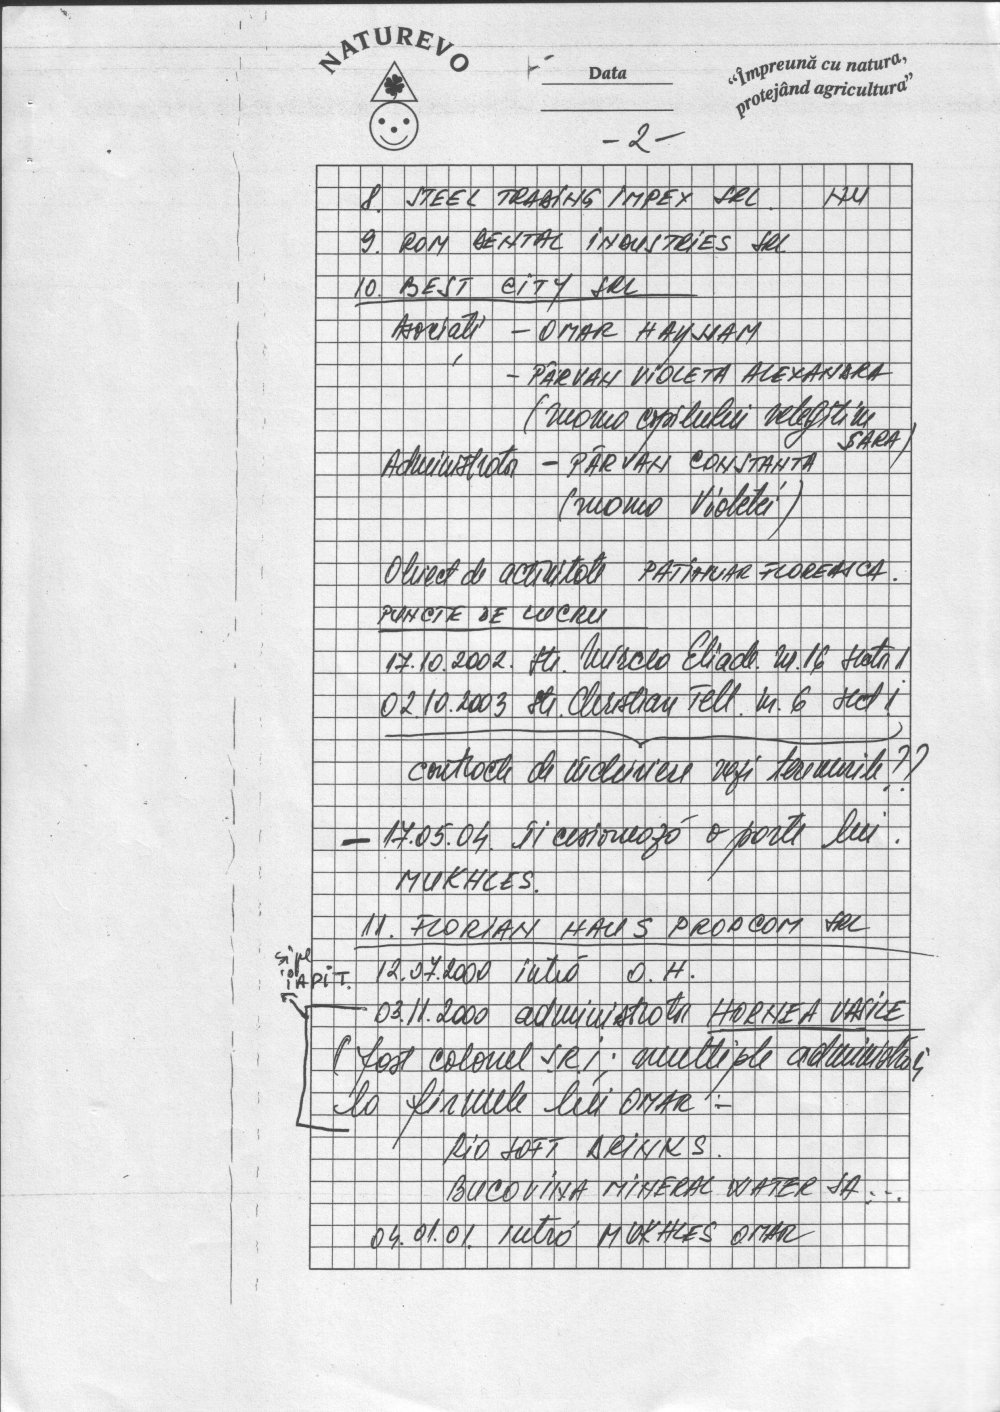 NATUREVO
Data
"Împreună cu natura,
protejând agricultura"
- 2 -
8. STEEL TRADING IMPEX SRL. NU
9. ROM DENTAL INDUSTRIES SRL
10. BEST CITY SRL
Asociați - OMAR HAYSSAM
- PÂRVAN VIOLETA ALEXANDRA
(mama copilului nelegitim
SARA)
Administrator - PÂRVAN CONSTANTA
(mama Violetei)
Obiect de activitate PATINOAR FLOREASCA.
PUNCTE DE LUCRU
17.10.2002. Str. Mircea Eliade. nr. 16 sector 1
02.10.2003 Str. Christian Tell. nr. 6 sect 1
contracte de închiriere vezi termenele??
- 17.05.04. Îi cesionează o parte lui.
MUKHLES.
11. FLORIAN HAUS PRODCOM SRL
și pe
la APIT.
12.07.2000 intră O.H.
03.11.2000 administrator HORNEA VASILE
(fost colonel S.R.I; multiple administrări
la firmele lui OMAR :-
RIO SOFT DRINKS.
BUCOVINA MINERAL WATER SA...
04.01.01. intră MUKHLES OMAR